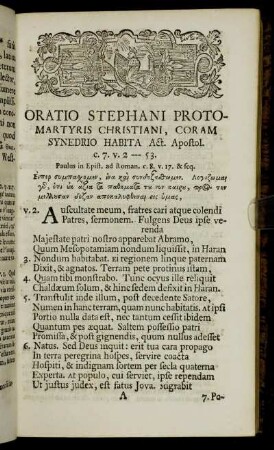 ORATIO STEPHANI PROTO-
MARTYRIS CHRISTIANI, CORAM
SYNEDRIO HABITA Act. Apostol.
c. 7. v. 2 — 53.
Paulus in Epist. ad Roman. c. 8. v. 17. & seq.
v. 2. Auscultate meum, fratres cari atque colendi
Patres, sermonem. Fulgens Deus ipse ve-
renda
Majestate patri nostro apparebat Abramo,
Quum Mesopotamiam nondum liquisset, in Haran
3. Nondum habitabat. Ei regionem linque paternam
Dixit, & agnatos. Terram pete protinus istam,
4. Quam tibi monstrabo. Tunc ocyus ille reliquit
Chaldæum solum, & hinc sedem defixit in Haran.
5. Transtulit inde illum, post decedente Satore,
Numen in hanc terram, quam nunc habitatis. At ipsi
Portio nulla data est, nec tantum cessit ibidem
Quantum pes æquat. Saltem possessio patri
Promissa, & post gignendis, quum nullus adesset
6. Natus. Sed Deus inquit: erit tua cara propago
In terra peregrina hospes, servire coacta
Hospiti, & indignam sortem per secla quaterna
Experta. At populo, cui serviet, ipse rependam
Ut justus judex, est fatus Jova. migrabit
A
7. Po-